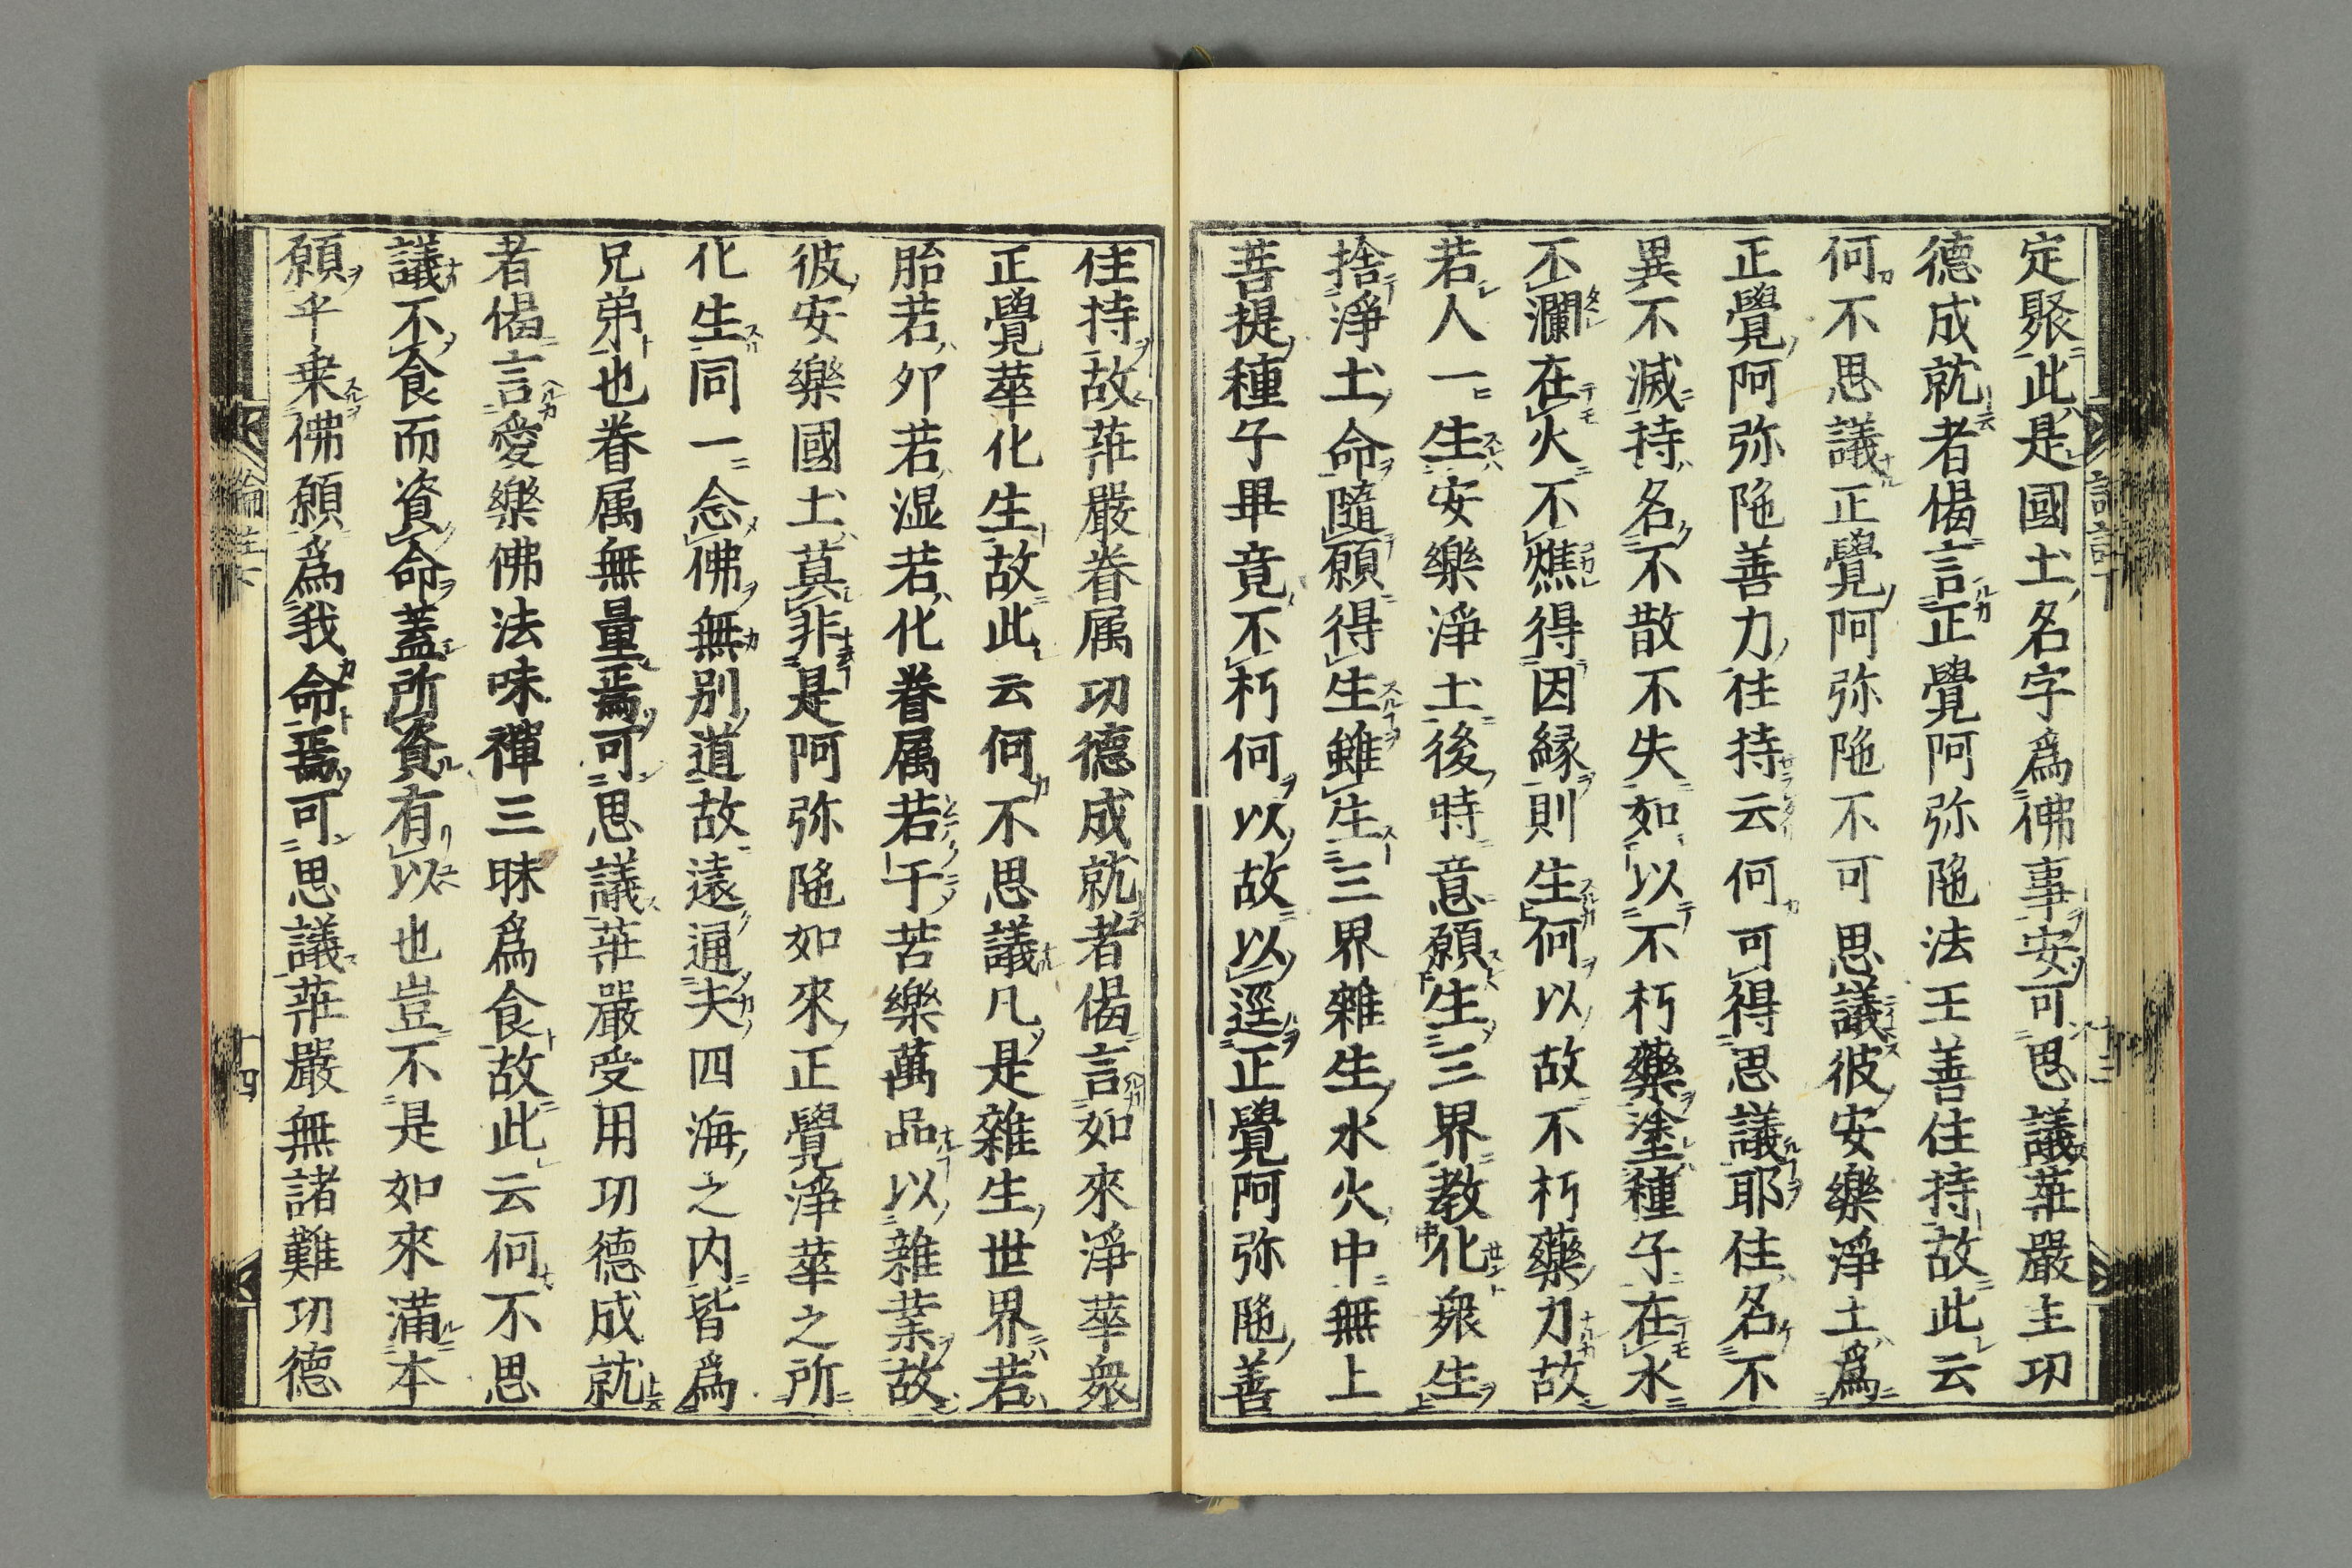 定聚此是國土名字爲佛事安可思議莊嚴主功
德成就者偈言正覺阿弥陁法王善住持故此云
何不思議正覺阿弥陁不可思議彼安樂淨土爲
正覺阿弥陁善力住持云何可得思議耶住名不
異不滅持名不散不失如以不朽藥塗種子在水
不瀾在火不燋得因縁則生何以故不朽藥力故
若人一生安樂淨土後時意願生三界教化衆生
捨淨土命隨願得生雖生三界雜生水火中無上
菩提種子畢竟不朽何以故以逕正覺阿弥陁善
住持故莊嚴眷属功德成就者偈言如來淨華衆
正覺華化生故此云何不思議凡是雜生世界若
胎若夘若湿若化眷属若干苦樂萬品以雜業故
彼安樂國土莫非是阿弥陁如來正覺淨華之所
化生同一念佛無別道故遠通夫四海之内皆爲
兄弟也眷属無量焉可思議莊嚴受用功德成就
者偈言愛樂佛法味禪三昧爲食故此云何不思
議不食而資命蓋所資有以也豈不是如來滿本
願乎乗佛願爲我命焉可思議莊嚴無諸難功德
論註下
十四